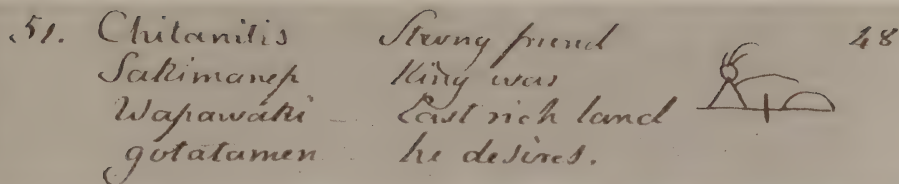 51. Chitanitis Strong friend 48
Sakimanep King was
Wapawaki – East rich land
gotatamen he desires.